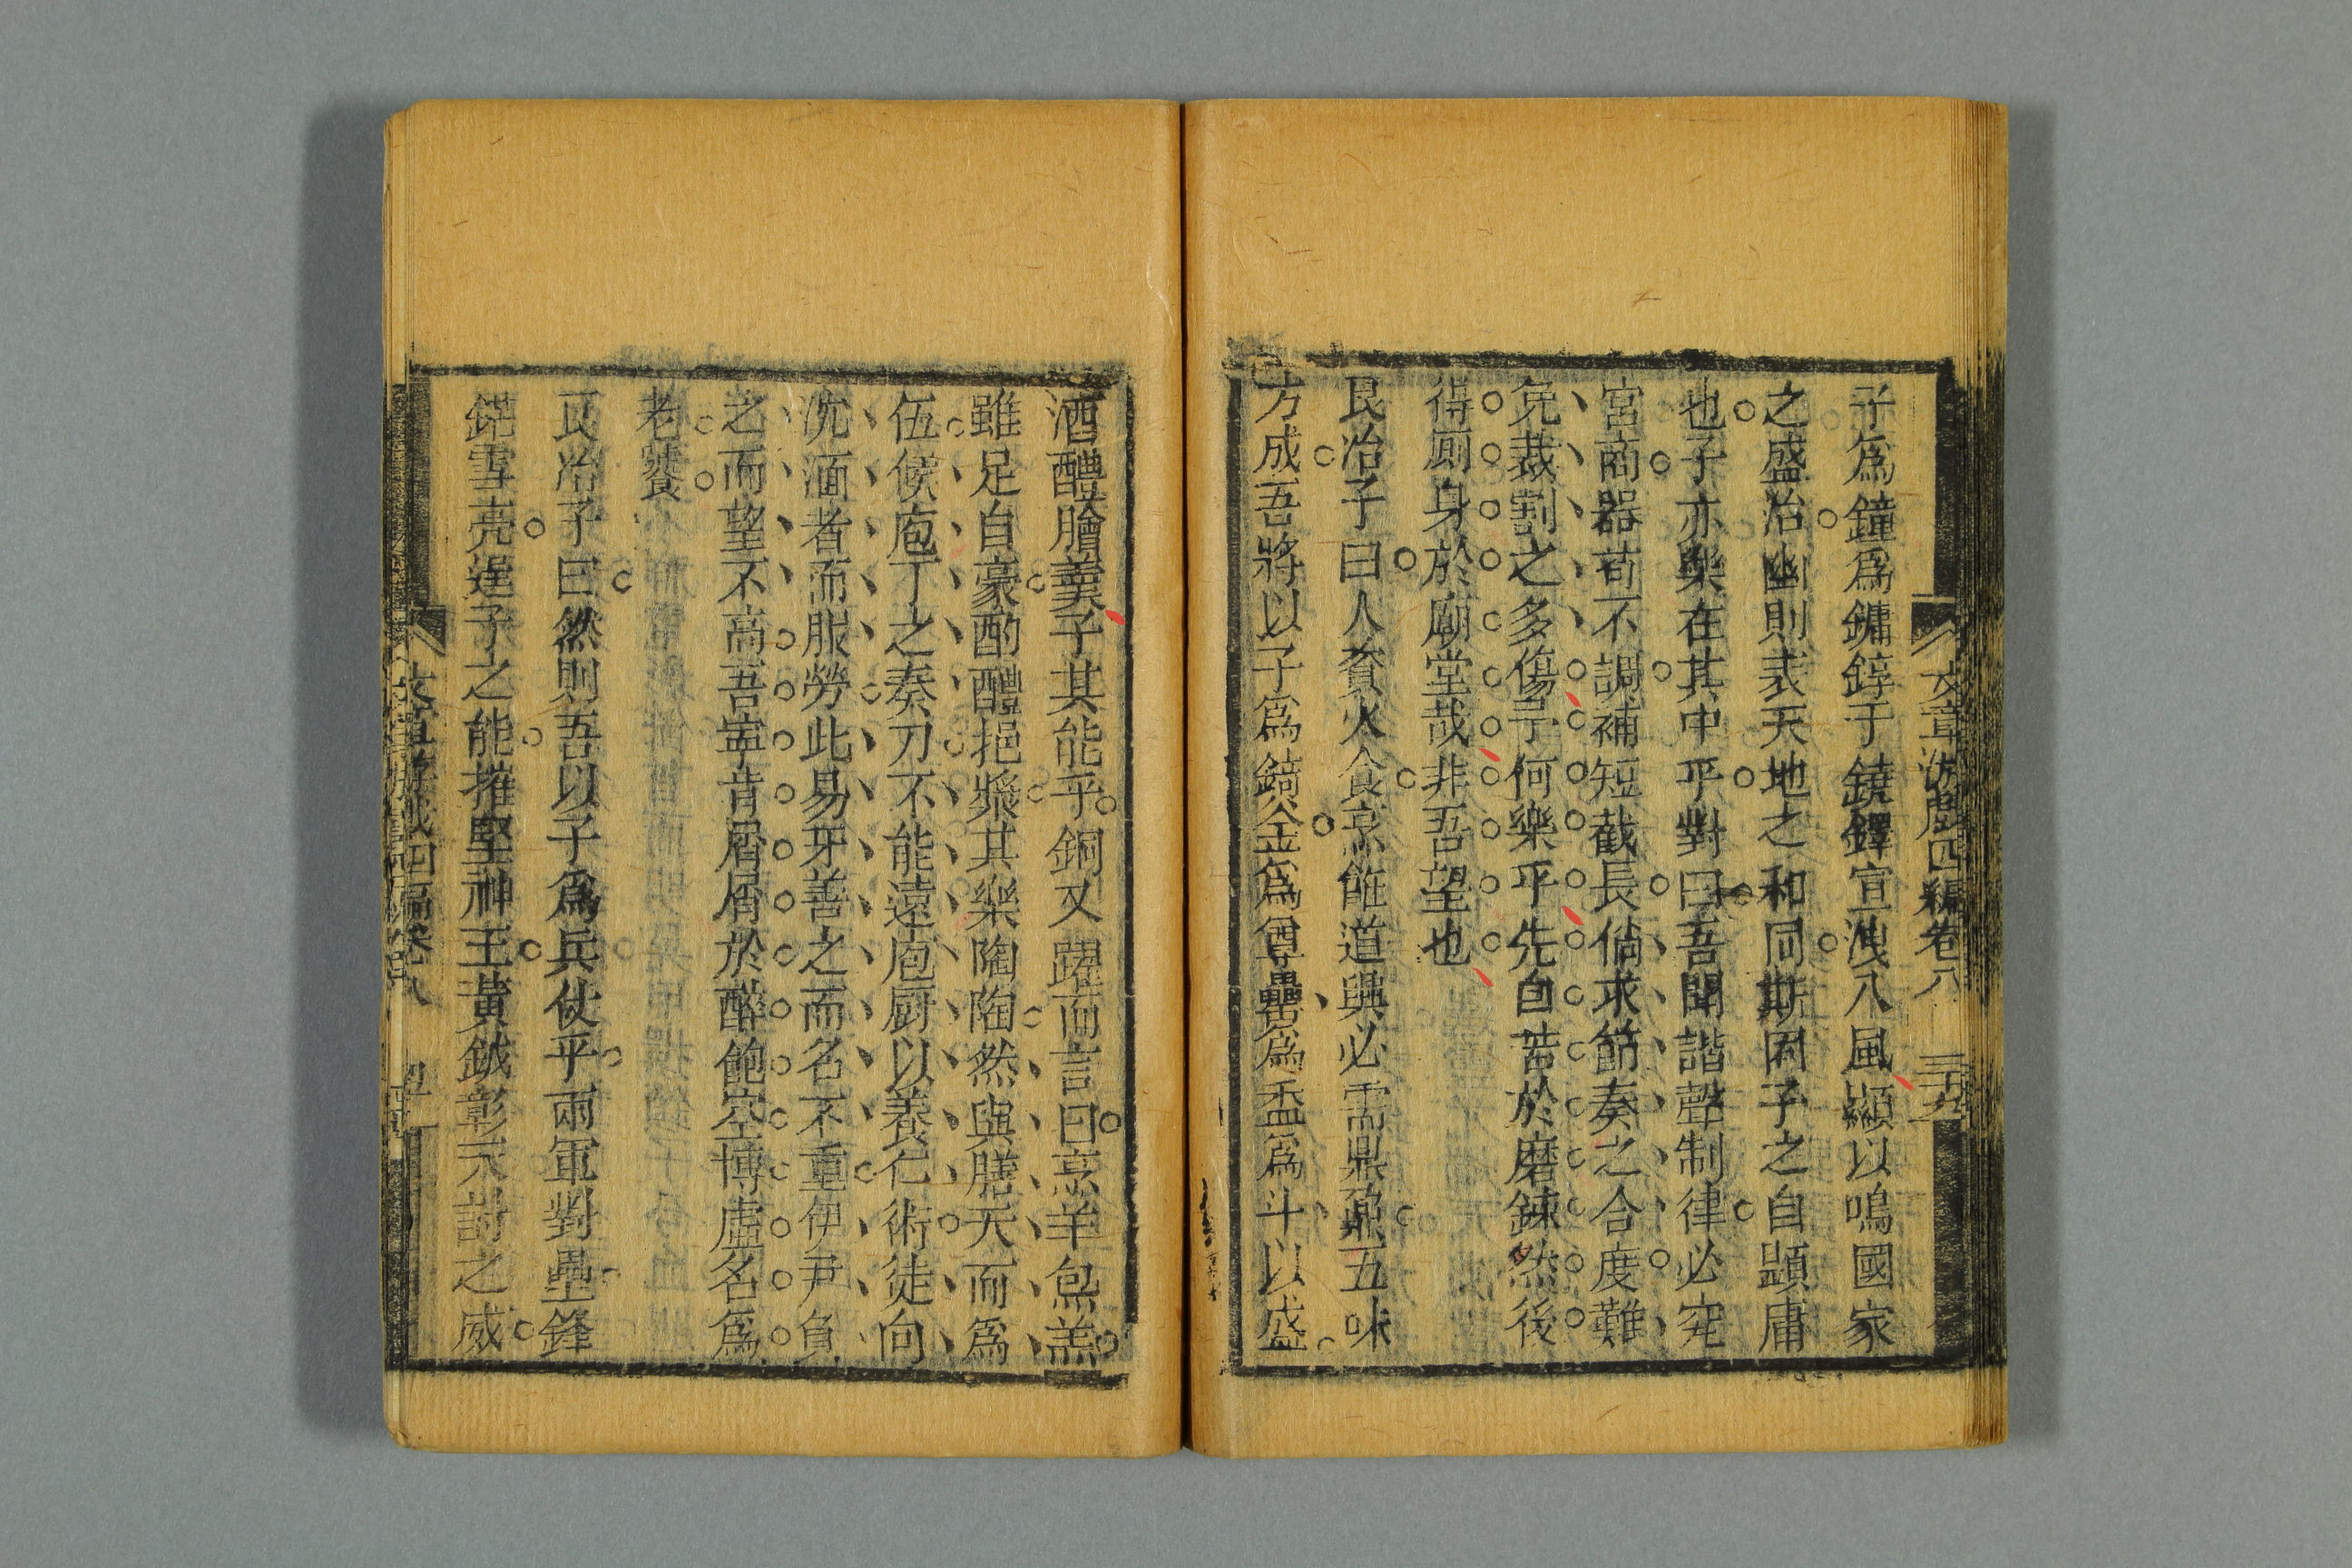 文章游戲四編卷八 三十九
子爲鐘爲鏞錞于鐃鐸宣洩八風顯以鳴國家
之盛治幽則表天地之和同斯固子之自顯庸
也子亦樂在其中乎對曰吾聞諧聲制律必究
宮商器苟不調補短截長倘求節奏之合度難
免裁割之多傷予何樂乎先自苦於磨鍊然後
得厠身於廟堂哉非吾望也
良冶子曰人資火食烹飪道興必需鼎鼐五味
方成吾將以子爲錡釜爲尊罍爲盉爲斗以盛
酒醴膾羹子其能乎銅又躍而言曰烹羊炰羔
雖足自豪酌醴挹漿其樂陶陶然與膳夫而爲
伍候庖丁之奏刀不能遠庖厨以養仁術徒向
沈湎者而服勞此易牙善之而名不重伊尹負
之而望不高吾寧肯屑屑於醉飽空博虛名爲
老饕
良冶子曰然則吾以子爲兵仗乎兩軍對壘鋒
鋩雪亮逞子之能摧堅神王黃鉞彰天討之威
文章游戲四編卷八